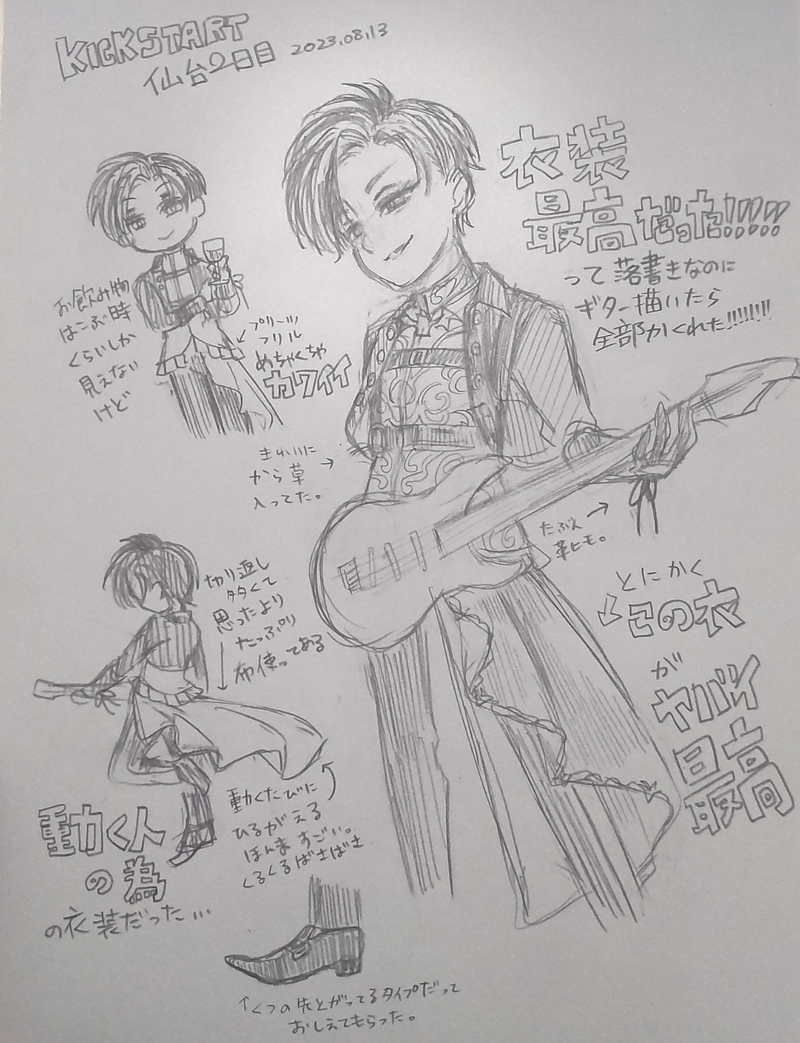 KICKSTART
仙台2日目 2023.08.13
衣装
最高だった!!!!!
って落書きなのに
ギター描いたら
全部かくれた!!!!!!!!
お飲み物
はこぶ時
くらいしか
見えない
けど
プリーツ
フリル
めちゃくちゃ
カワイイ
きれいに
から草
入ってた。
たぶん
革ヒモ。
切り返し
多くて
思ったより
たっぷり
布使ってある
とにかく
この衣
が
ヤバイ
最高
動くたびに
ひるがえる
ほんますごい。
くるくるばさばさ
動く人
の為
の衣装だった…
↑くつの先とがってるタイプだって
おしえてもらった。